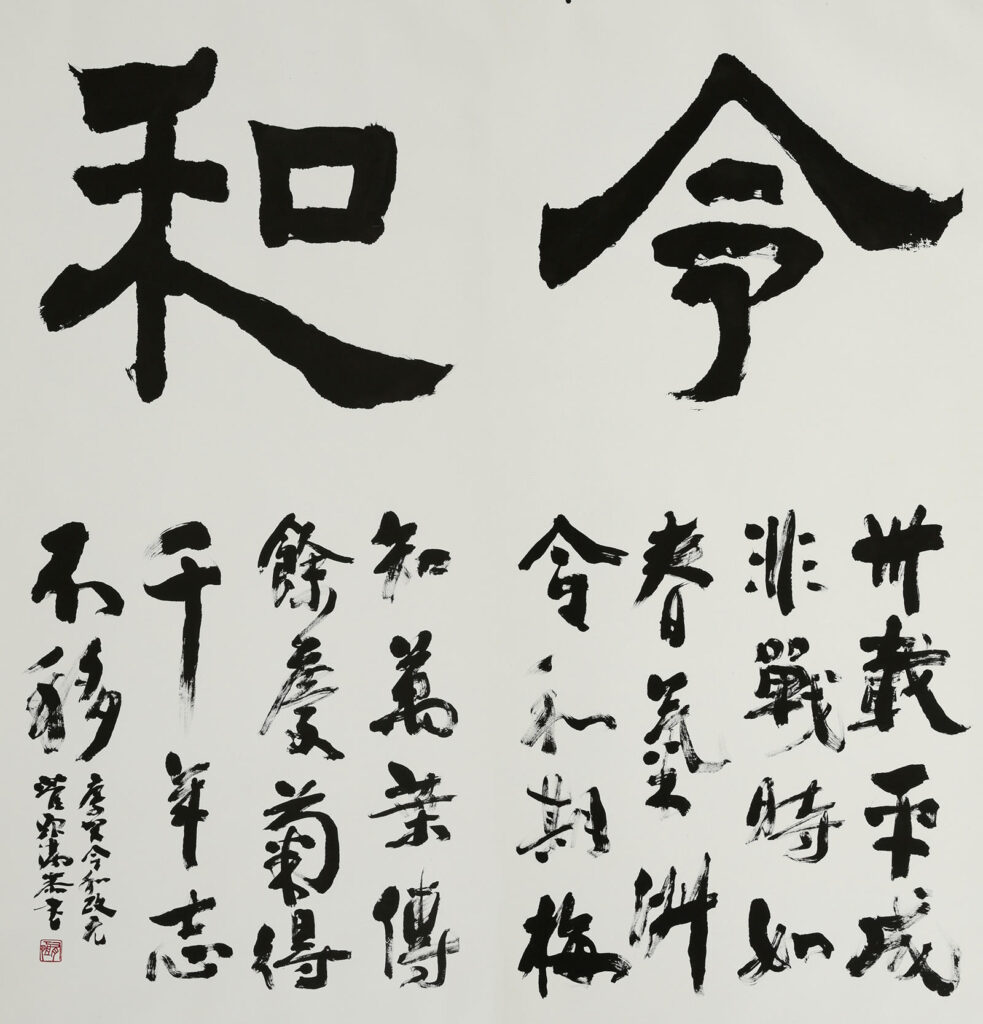 令
和
卅載平成
非戰時如
春氣淑
令和期梅
知萬葉傳
餘慶菊得
千年志
不移
慶賀令和改元
恭書